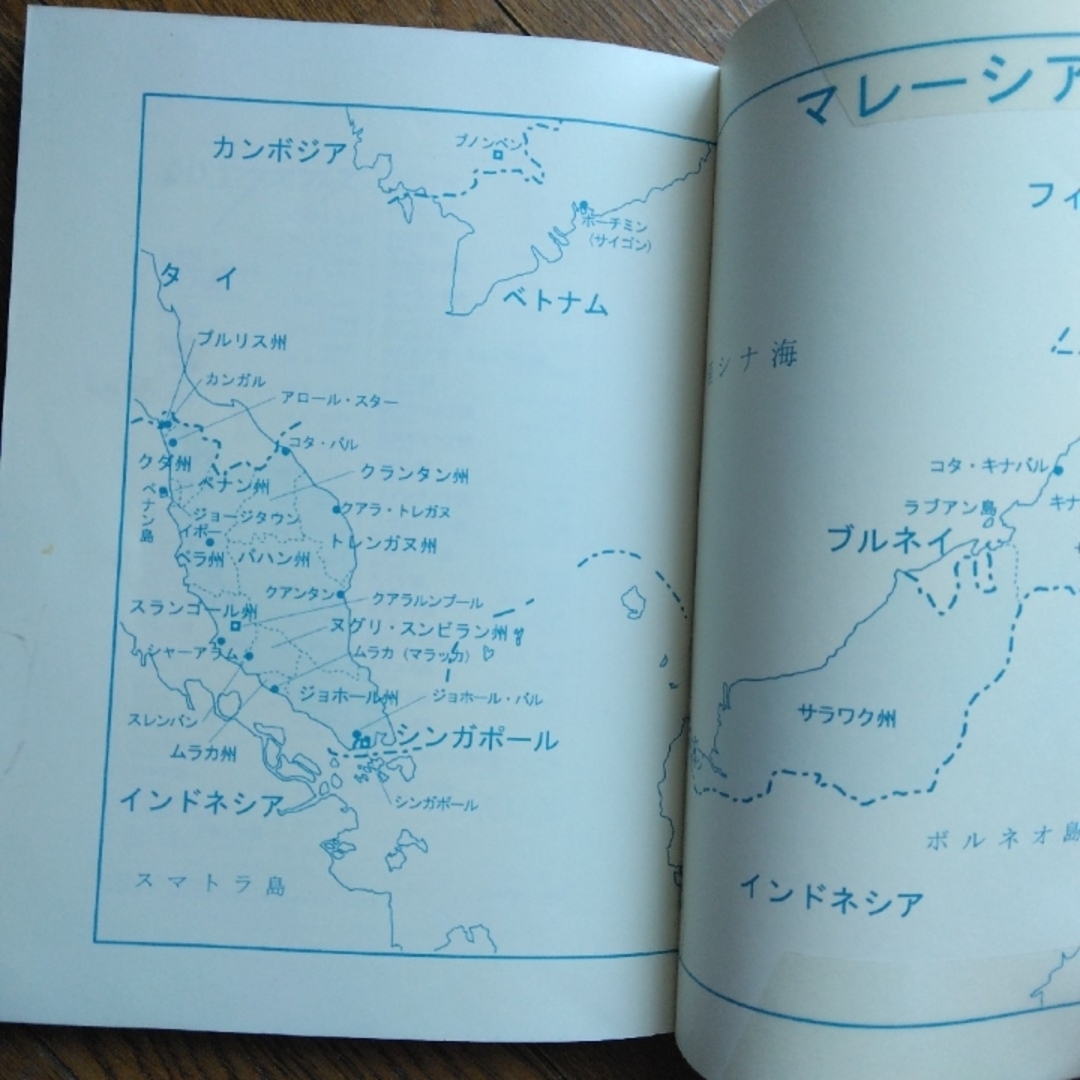 カンボジア
プノンペン
ホーチミン
(サイゴン)
タイ
ベトナム
プルリス州
カンガル
アロール・スター
コタ・バル
クダ州
クランタン州
ペナン州
ペナン島
クアラ・トレガヌ
ジョージタウン
イポー
トレンガヌ州
ペラ州
パハン州
クアンタン
クアラルンプール
スランゴール州
ヌグリ・スンビラン州
シャーアラム
ムラカ (マラッカ)
ジョホール州
ジョホール・バル
スレンバン
シンガポール
ムラカ州
インドネシア
シンガポール
スマトラ島
マレーシア
フィ
シナ海
コタ・キナバル
ラブアン島
キナ
ブルネイ
サラワク州
ボルネオ島
インドネシア